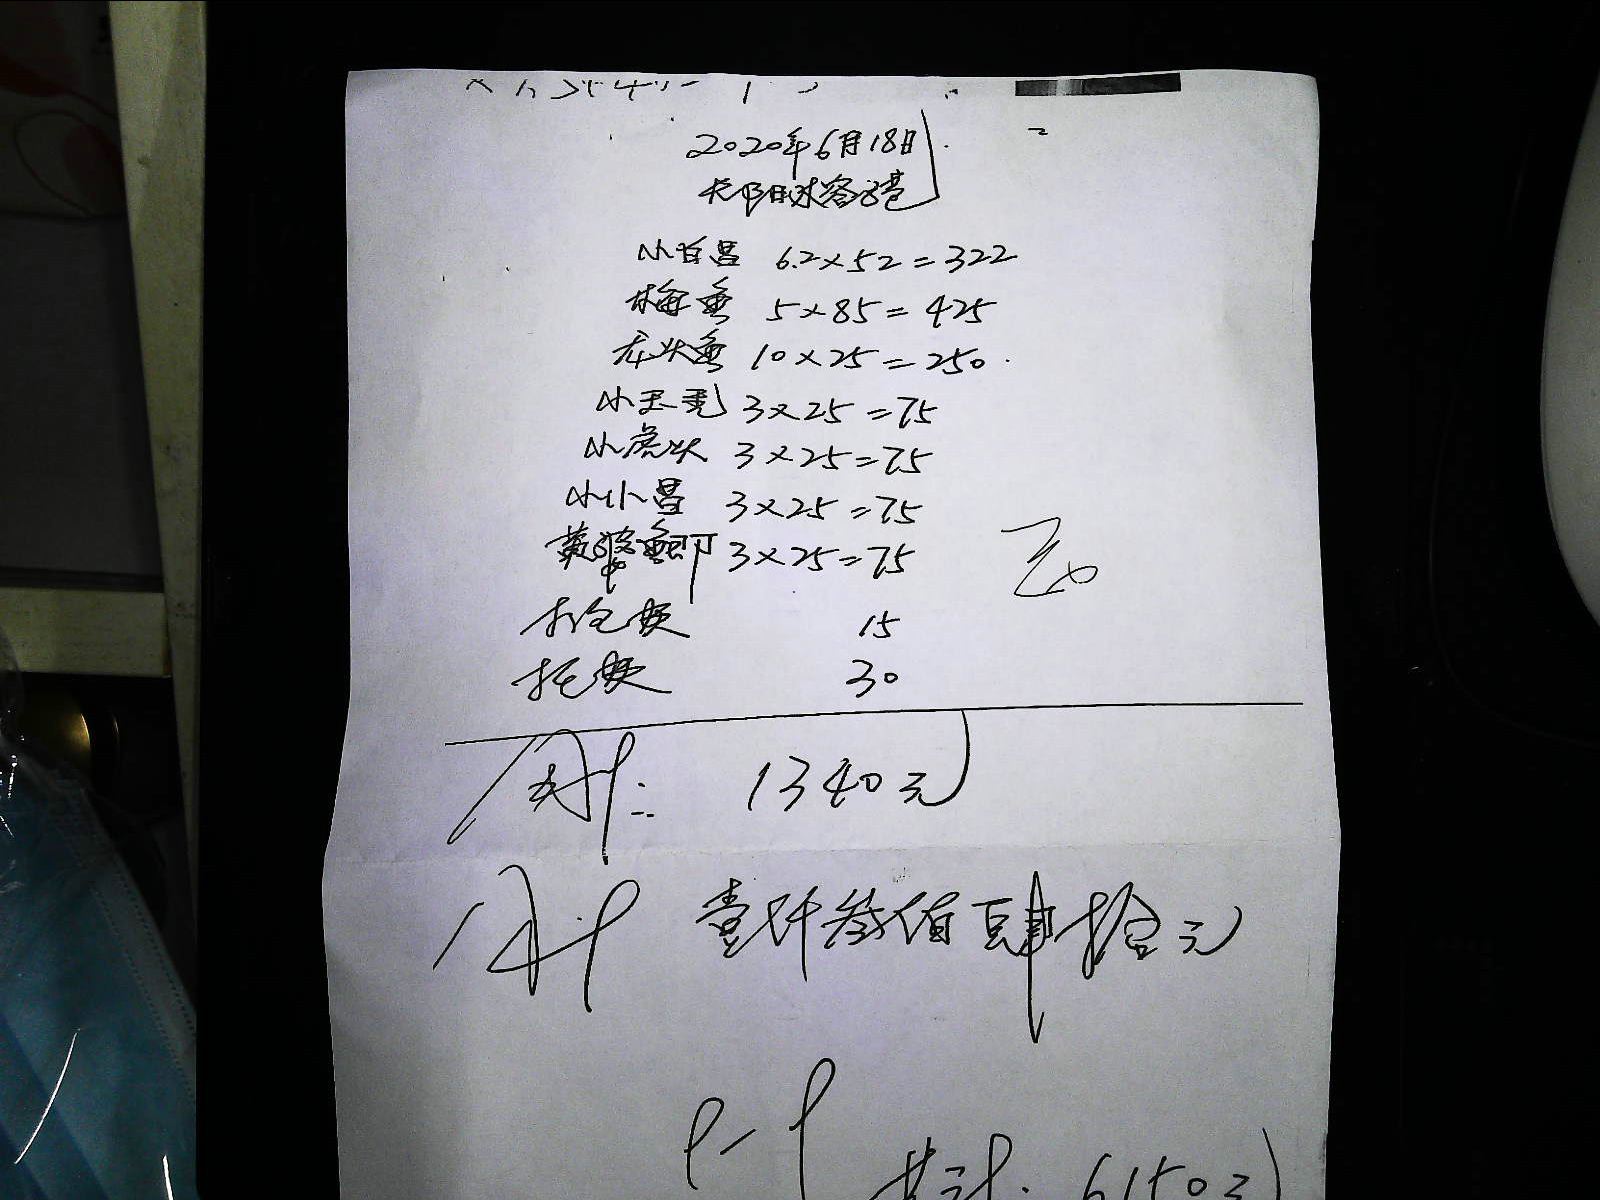 2020年6月18日
小白昌 6.2×52=322
梅鱼 5×85=425
龙头鱼 10×25=250
小玉秃 3×25=75
小虎头 3×25=75
小小昌 3×25=75
黄婆鱼 3×25=75
打包费 15
托费 30
合计: 1340元
合计 壹仟叁佰肆拾元
共计: 6150元